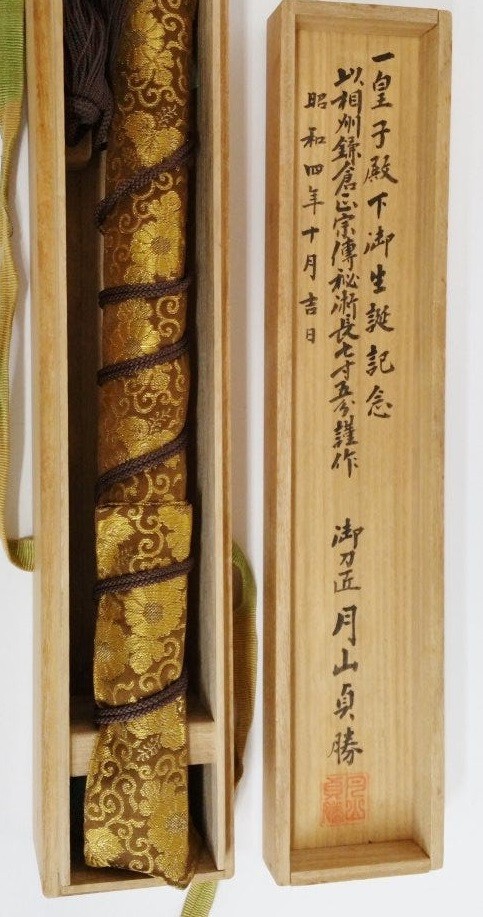 一皇子殿下御生誕記念
以相州鎌倉正宗傳秘術長七寸五分謹作
御刀匠月山貞勝
昭和四年十月吉日
月山貞勝